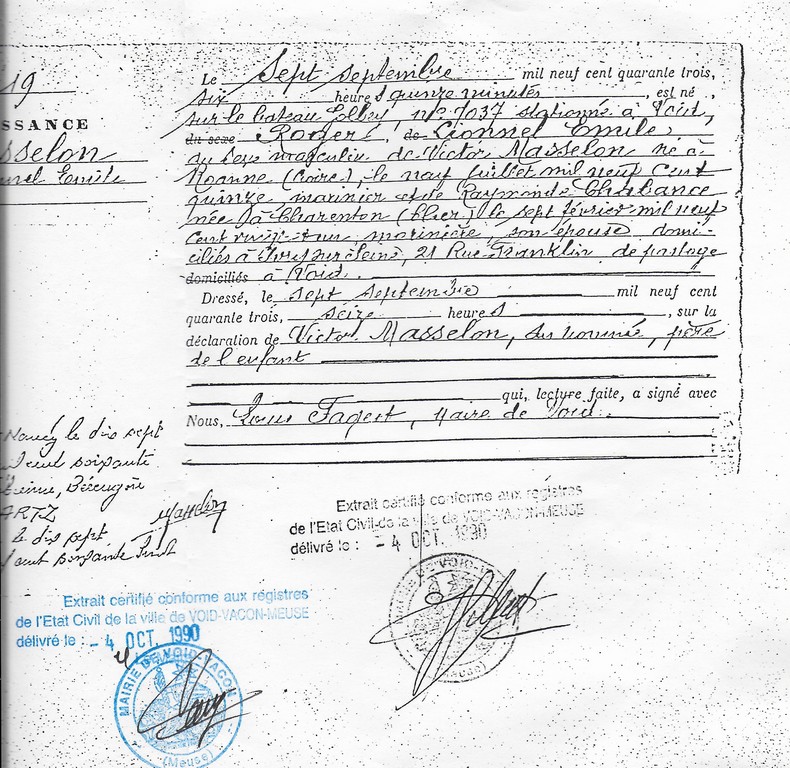 19
Le Sept septembre mil neuf cent quarante trois,
six heures quinze minutes, est né
sur le bateau n° 7037 stationné à Void,
du sexe Roger, de Lionnel Emile
du sexe masculin de Victor Masselon né à
Roanne (Loire), le neuf juillet mil neuf cent
quinze marinier et de Raymonde Chalance
née à Charenton (Cher) le sept février mil neuf
cent vingt un marinière, son épouse domi-
ciliés à Ivry sur Seine, 21 Rue Franklin de passage
domiciliés à Void.
Dressé, le sept septembre mil neuf cent
quarante trois, seize heures, sur la
déclaration de Victor Masselon, sus nommé, père
de l'enfant
qui, lecture faite, a signé avec
Nous, Louis Maire de Void.
ISSANCE
sselon
nel Emile
Nancy le dix sept
cent soixante
ARTZ
le dix sept
cent soixante huit
Masselon
Extrait certifié conforme aux registres
de l'Etat Civil de la ville de VOID-VACON-MEUSE
délivré le : - 4 OCT. 1990
Extrait certifié conforme aux régistres
de l'Etat Civil de la ville de VOID-VACON-MEUSE
délivré le : - 4 OCT. 1990
MAIRIE DE VOID-VACON
(Meuse)
(Meuse)